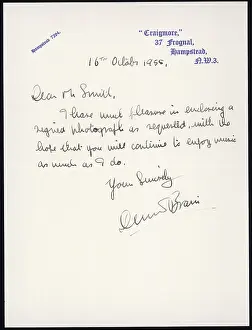 Hampstead 7294.
"Craigmore,"
37 Frognal,
Hampstead,
N.W.3.
16TH October 1955,
Dear Mr Smith,
I have much pleasure in enclosing a
signed photograph as requested, with the
hope that you will continue to enjoy music
as much as I do.
Yours Sincerely
Dennis Brain